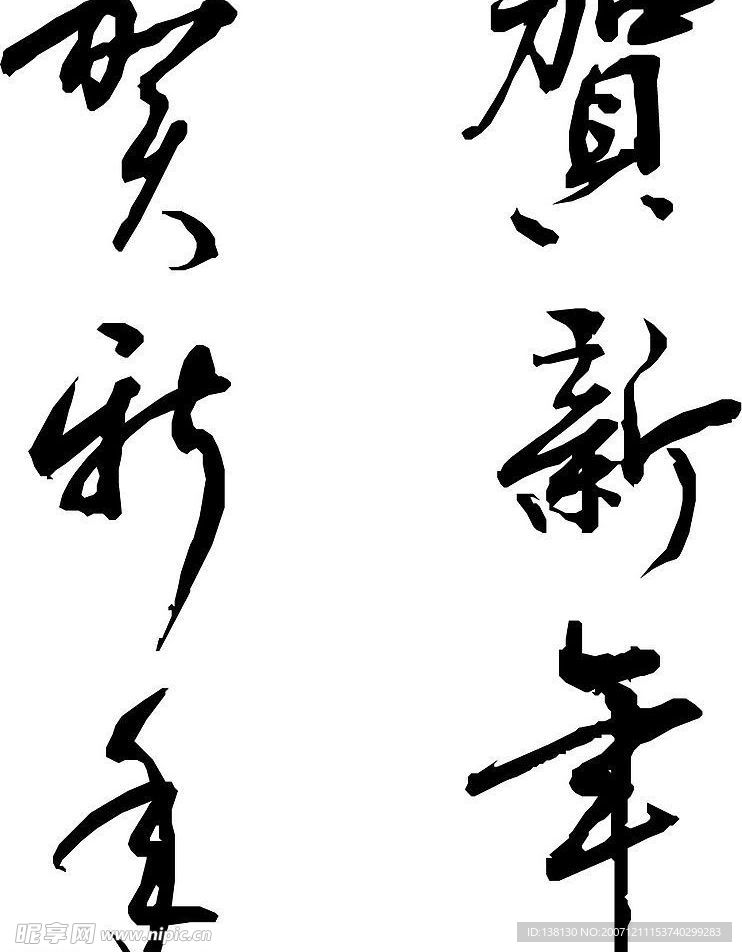 贺新年
賀新年
昵享网 www.nipic.cn
ID:138130 NO:20071211153740299283